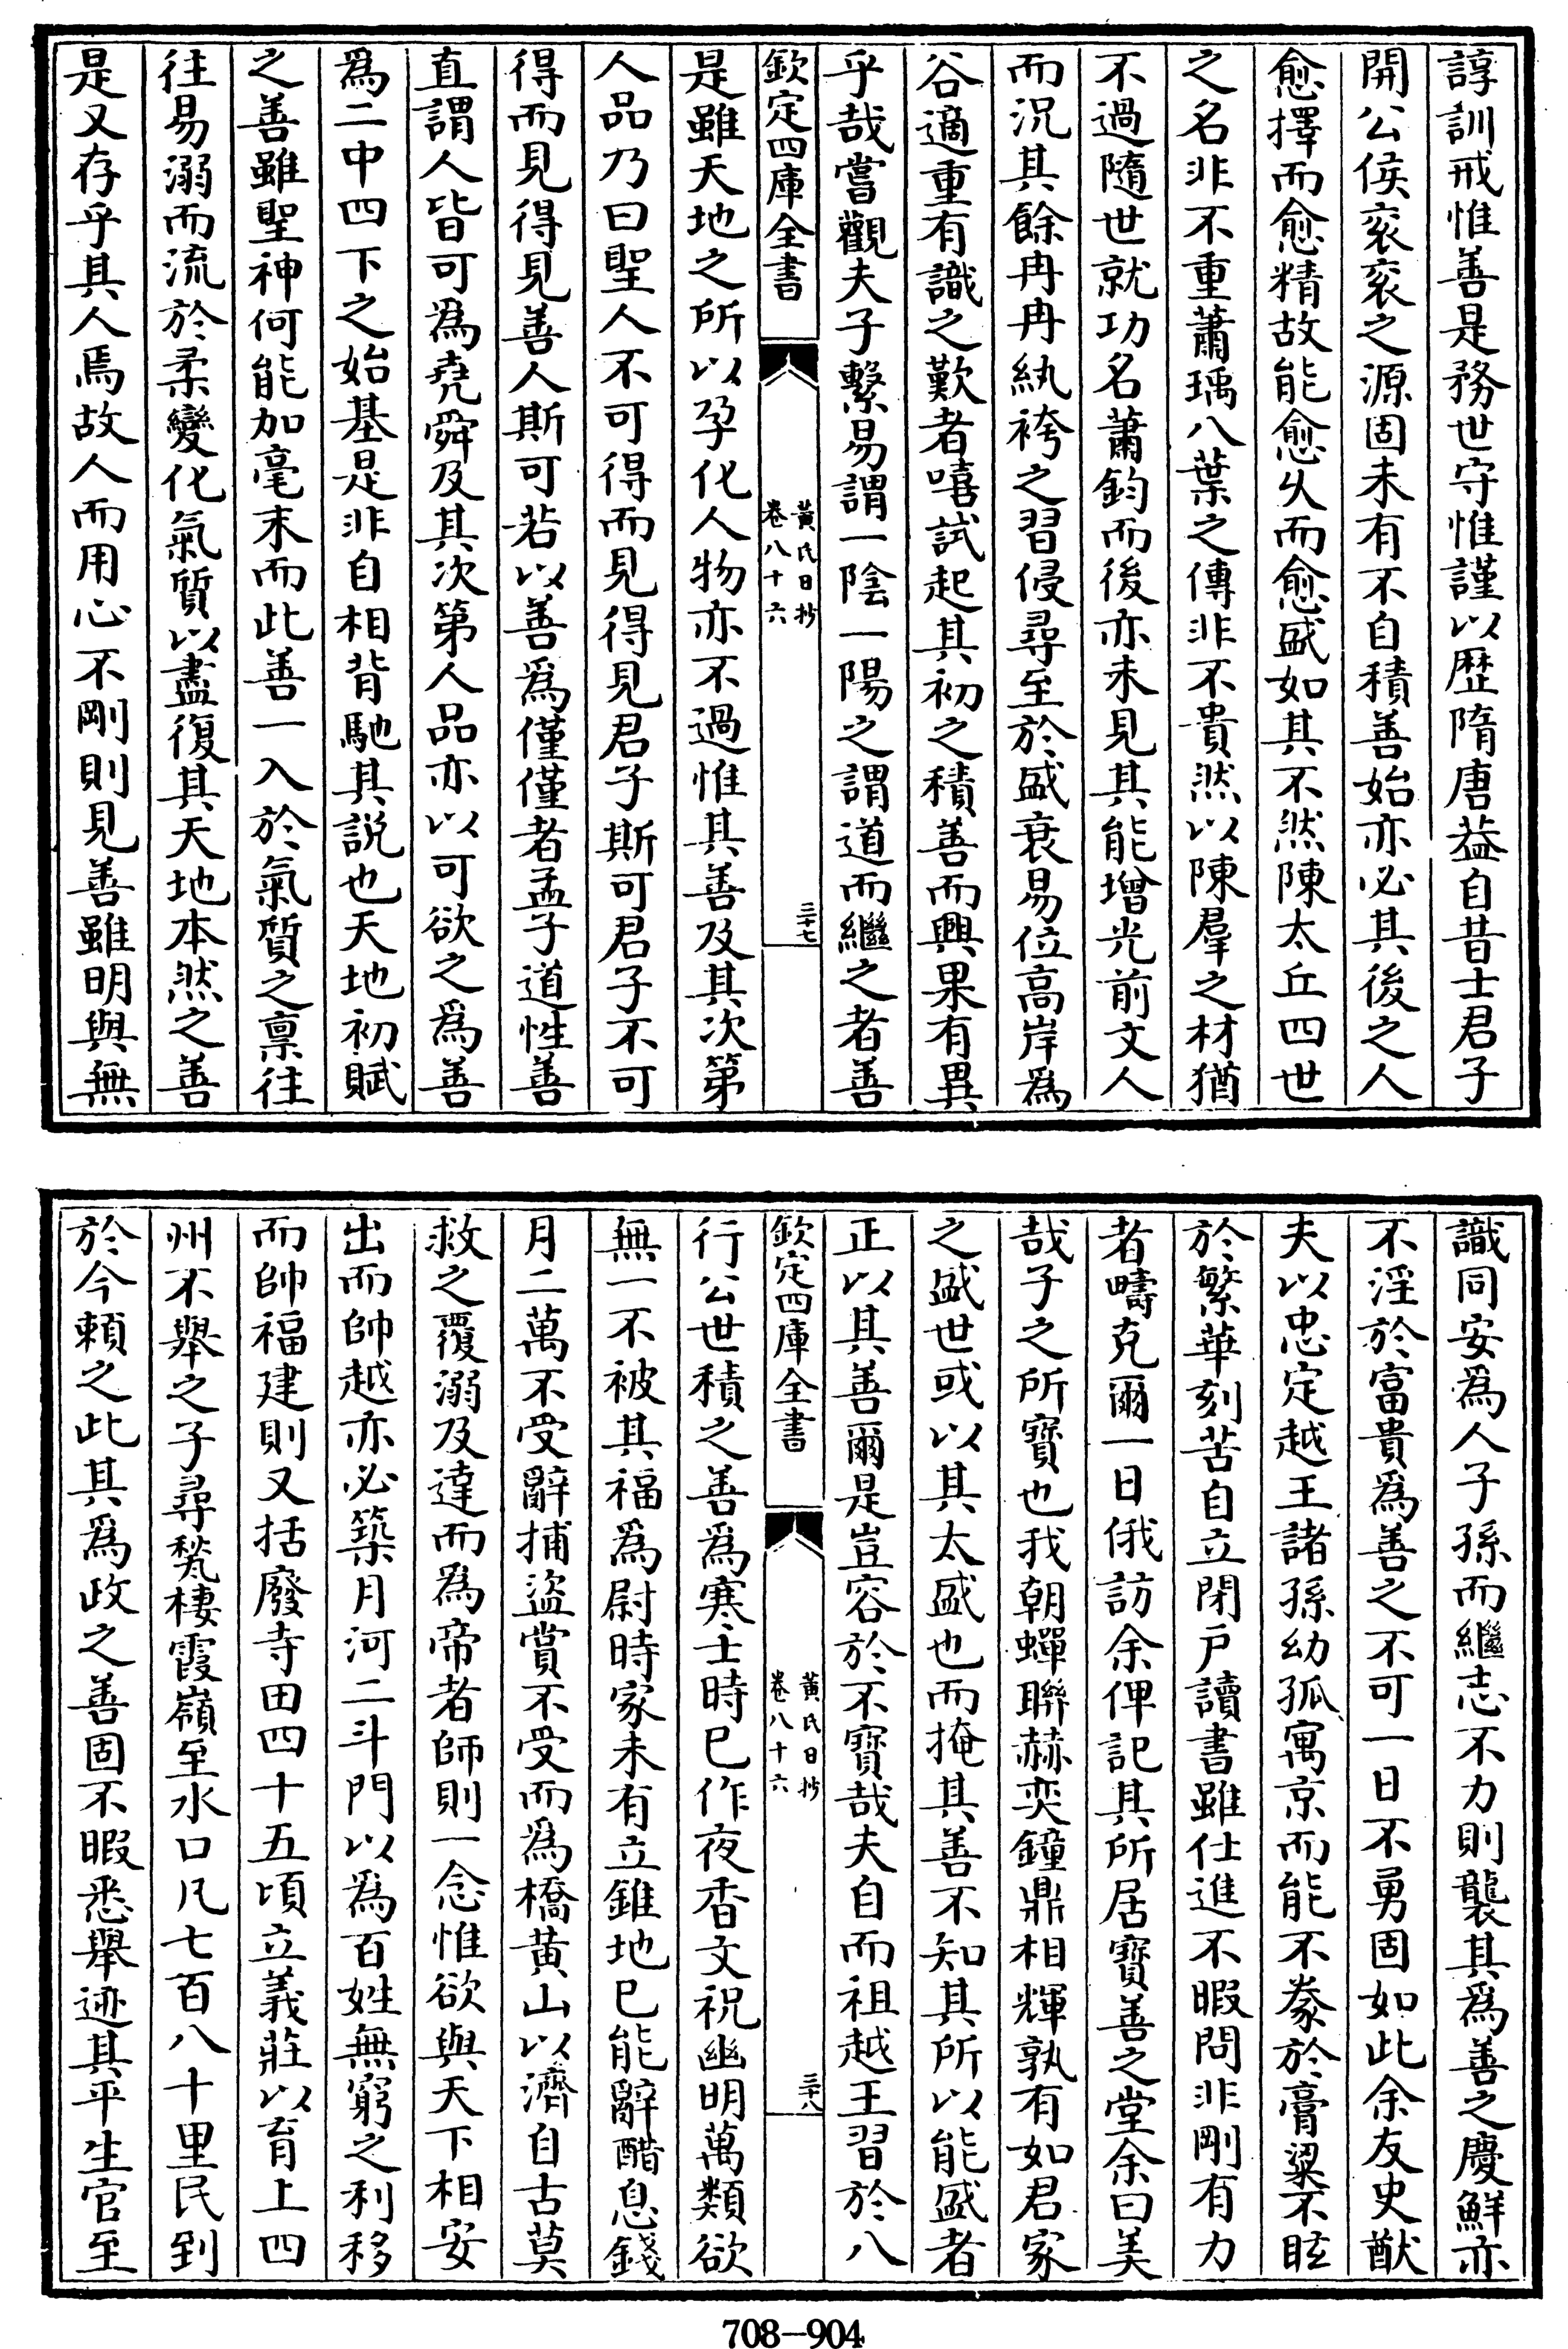 諄訓戒惟善是務世守惟謹以歴隋唐葢自昔士君子
開公侯衮衮之源固未有不自積善始亦必其後之人
愈擇而愈精故能愈乆而愈盛如其不然陳太丘四世
之名非不重蕭瑀八葉之傳非不貴然以陳羣之材猶
不過隨世就功名蕭鈞而後亦未見其能增光前文人
而況其餘冉冉紈袴之習侵尋至於盛衰易位高岸為
谷適重有識之歎者嘻試起其初之積善而興果有異
乎哉嘗觀夫子繫易謂一陰一陽之謂道而繼之者善
欽定四庫全書
黃氏日抄
卷八十六
三十七
是雖天地之所以孕化人物亦不過惟其善及其次第
人品乃曰聖人不可得而見得見君子斯可君子不可
得而見得見善人斯可若以善為僅僅者孟子道性善
直謂人皆可為堯舜及其次第人品亦以可欲之為善
為二中四下之始基是非自相背馳其説也天地初賦
之善雖聖神何能加毫末而此善一入於氣質之禀往
往易溺而流於柔變化氣質以盡復其天地本然之善
是又存乎其人焉故人而用心不剛則見善雖明與無
識同安為人子孫而繼志不力則襲其為善之慶鮮亦
不淫於富貴為善之不可一日不勇固如此余友史猷
夫以忠定越王諸孫幼孤寓京而能不豢於膏粱不眩
於繁華刻苦自立閉户讀書雖仕進不暇問非剛有力
者疇克爾一日俄訪余俾記其所居寶善之堂余曰美
哉子之所寶也我朝蟬聯赫奕鐘鼎相輝孰有如君家
之盛世或以其太盛也而掩其善不知其所以能盛者
正以其善爾是豈容於不寶哉夫自而祖越王習於八
欽定四庫全書
黃氏日抄
卷八十六
三十八
行公世積之善為寒士時已作夜香文祝幽明萬類欲
無一不被其福為尉時家未有立錐地已能辭醋息錢
月二萬不受辭捕盜賞不受而為橋黃山以濟自古莫
救之覆溺及達而為帝者師則一念惟欲與天下相安
出而帥越亦必築月河二斗門以為百姓無窮之利移
而帥福建則又括廢寺田四十五頃立義莊以育上四
州不舉之子尋甃棲霞嶺至水口凡七百八十里民到
於今頼之此其為政之善固不暇悉舉迹其平生官至
708-904